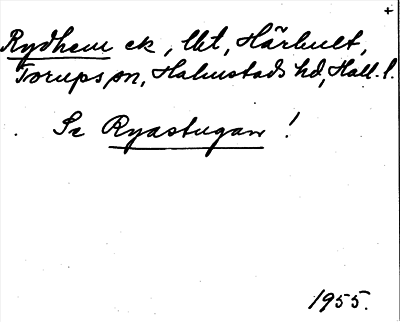 +
Rydhem ek, lht, Härhult,
Torups sn, Halmstads hd, Hall. l.
Se Ryastugan!
1955.